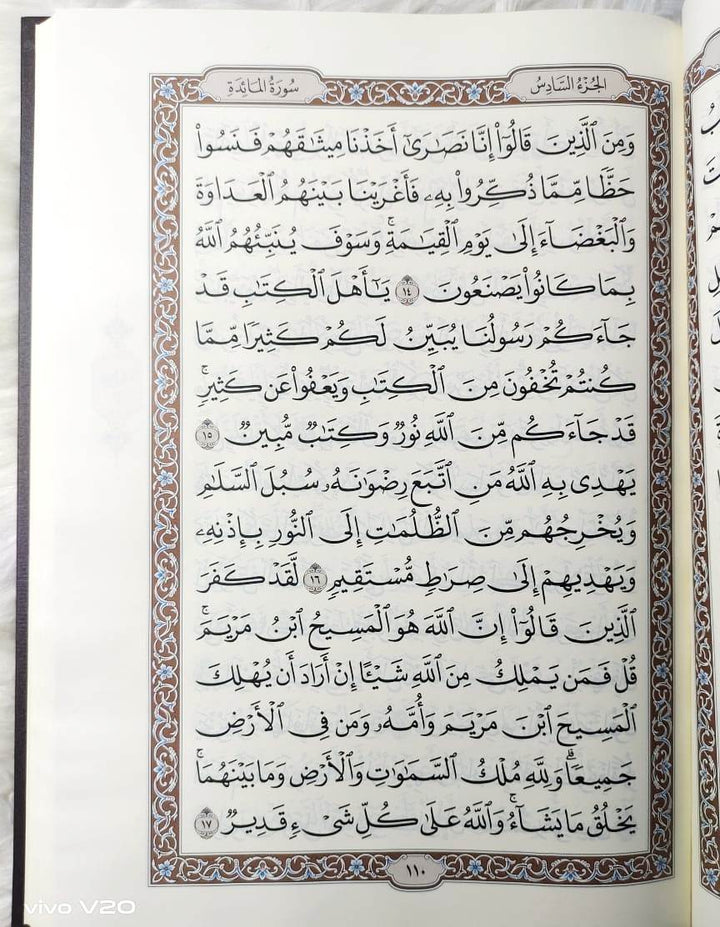 الجُزْءُ السَّادِسُ
سُورَةُ المَائِدَةِ
وَمِنَ ٱلَّذِينَ قَالُوٓاْ إِنَّا نَصَٰرَىٰٓ أَخَذۡنَا مِيثَٰقَهُمۡ فَنَسُواْ
حَظّٗا مِّمَّا ذُكِّرُواْ بِهِۦ فَأَغۡرَيۡنَا بَيۡنَهُمُ ٱلۡعَدَاوَةَ
وَٱلۡبَغۡضَآءَ إِلَىٰ يَوۡمِ ٱلۡقِيَٰمَةِۚ وَسَوۡفَ يُنَبِّئُهُمُ ٱللَّهُ
بِمَا كَانُواْ يَصۡنَعُونَ ١٤ يَٰٓأَهۡلَ ٱلۡكِتَٰبِ قَدۡ
جَآءَكُمۡ رَسُولُنَا يُبَيِّنُ لَكُمۡ كَثِيرٗا مِّمَّا
كُنتُمۡ تُخۡفُونَ مِنَ ٱلۡكِتَٰبِ وَيَعۡفُواْ عَن كَثِيرٖۚ
قَدۡ جَآءَكُم مِّنَ ٱللَّهِ نُورٞ وَكِتَٰبٞ مُّبِينٞ ١٥
يَهۡدِي بِهِ ٱللَّهُ مَنِ ٱتَّبَعَ رِضۡوَٰنَهُۥ سُبُلَ ٱلسَّلَٰمِ
وَيُخۡرِجُهُم مِّنَ ٱلظُّلُمَٰتِ إِلَى ٱلنُّورِ بِإِذۡنِهِۦ
وَيَهۡدِيهِمۡ إِلَىٰ صِرَٰطٖ مُّسۡتَقِيمٖ ١٦ لَّقَدۡ كَفَرَ
ٱلَّذِينَ قَالُوٓاْ إِنَّ ٱللَّهَ هُوَ ٱلۡمَسِيحُ ٱبۡنُ مَرۡيَمَۚ
قُلۡ فَمَن يَمۡلِكُ مِنَ ٱللَّهِ شَيۡـًٔا إِنۡ أَرَادَ أَن يُهۡلِكَ
ٱلۡمَسِيحَ ٱبۡنَ مَرۡيَمَ وَأُمَّهُۥ وَمَن فِي ٱلۡأَرۡضِ
جَمِيعٗاۗ وَلِلَّهِ مُلۡكُ ٱلسَّمَٰوَٰتِ وَٱلۡأَرۡضِ وَمَا بَيۡنَهُمَاۚ
يَخۡلُقُ مَا يَشَآءُۚ وَٱللَّهُ عَلَىٰ كُلِّ شَيۡءٖ قَدِيرٞ ١٧
١١٠
vivo V20